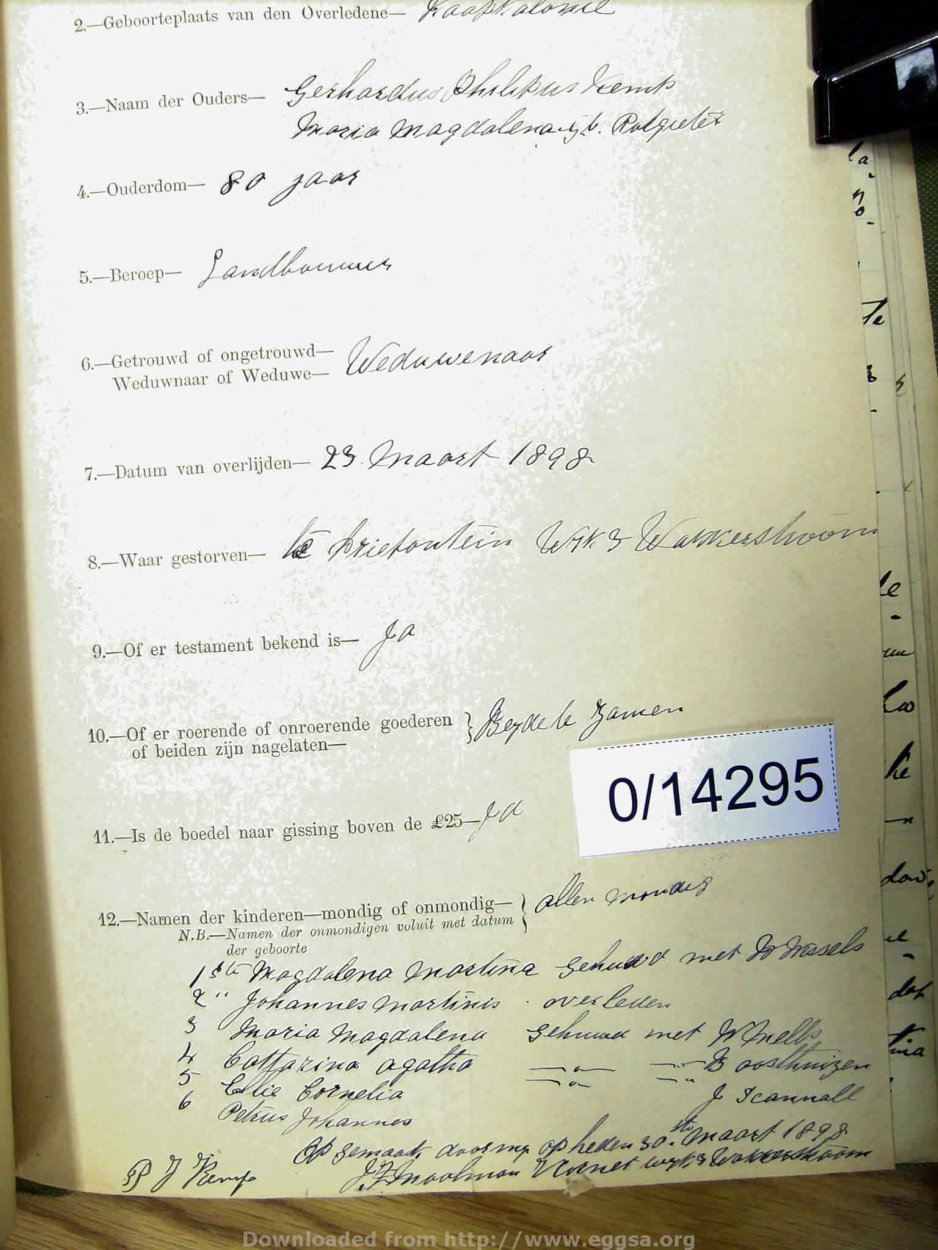 2.—Geboorteplaats van den Overledene— Kaapkolonie
3.—Naam der Ouders— Gerhardus Philipus Kemp
Maria Magdalena gb. Potgieter
4.—Ouderdom— 80 jaar
5.—Beroep— Landbouwer
6.—Getrouwd of ongetrouwd—
Weduwnaar of Weduwe— Weduwenaar
7.—Datum van overlijden— 23 Maart 1898
8.—Waar gestorven— te Drietontein Wyk 3 Wakkerstroom
9.—Of er testament bekend is— Ja
10.—Of er roerende of onroerende goederen } Beyde te zamen
of beiden zijn nagelaten—
0/14295
11.—Is de boedel naar gissing boven de £25— Ja
12.—Namen der kinderen—mondig of onmondig— } allen mondig
N.B.—Namen der onmondigen voluit met datum
der geboorte
1ste Magdalena Martina gehuwd met Wessels
2 " Johannes Martinis . overleden
3 Maria Magdalena gehuwd met Nell
4 Cattarina agatha —"— —"— B oosthuizen
5 Cornelia —"— —"— J Scannall
6 Petrus Johannes
Op gemaak door my op heden 30ste Maart 1898
P J Kemp J. Moolman V Cornet wyk 3 Wakkerstroom
Downloaded from http://www.eggsa.org